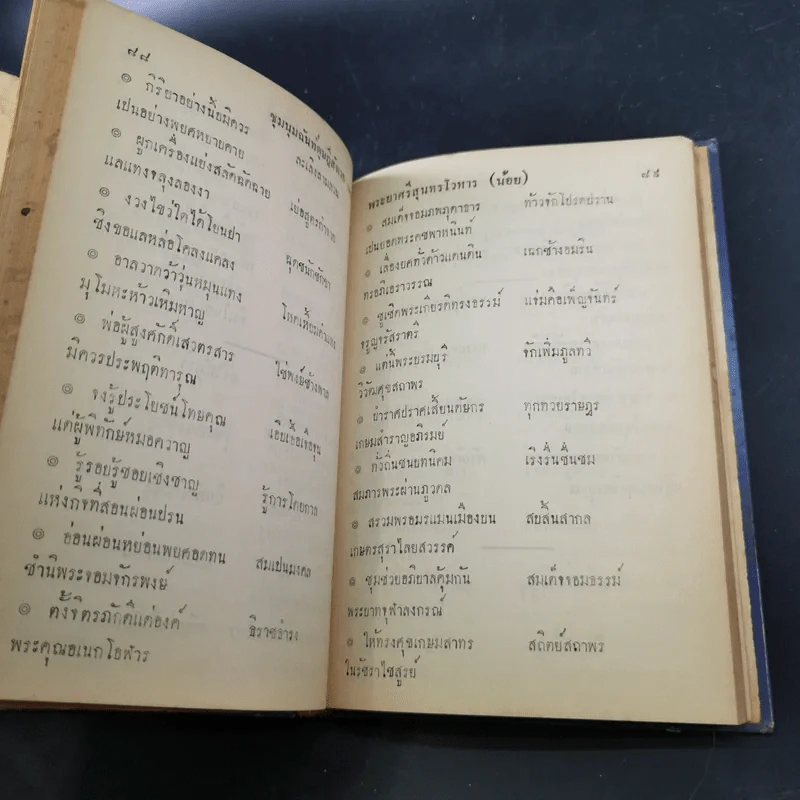 ๘๔
ชุมนุมฉันท์ดุษฎีสังเวย
๏ กิริยาอย่างนั้นมิควร
เปนอย่างพยศหยาบคาย
๏ ผูกเครื่องแย่งสลัดฉัดฉาย
แลแทงจลุงลองงา
๏ งวงไขว่ใดได้โยนฝา
ชิงขอแลหล่อโคลงแคลง
๏ อาลวาดว้าวุ่นหมุนแทง
มุโมหะห้าวเหิมหาญ
๏ พ่อผู้สูงศักดิ์เสวตรสาร ใช่พงษ์ช้างพาล
มิควรประพฤติทารุณ
๏ จงรู้ประโยชน์โทษคุณ เอ็นเอื้อเจือจุน
แด่ผู้พิทักษ์หมอควาญ
๏ รู้รอยรู้ชอยเชิงชาญ รู้การโดยกาล
แห่งกิจที่สอนผ่อนปรน
๏ อ่อนผ่อนหย่อนพยศอดทน สมเปนมงคล
ชำนิพระจอมจักรพงษ์
๏ ตั้งจิตรภักดีแด่องค์ ธิราชธำรง
พระคุณอเนกโอฬาร
พระยาศรีสุนทรโวหาร (น้อย) ๘๕
๏ สมเด็จจอมภพภุดาธาร ท้าวจักโปรดปราน
เปนยอดพระคชพาหนินท์
๏ เลื่องยศทั่วด้าวแดนดิน เนกช้างอมริน
ทรอภิเอราวรรณ
๏ ชูเชิดพระเกียรติทรงธรรม์ แจ่มคือเพ็ญจันทร์
จรูญจรัสราตรี
๏ แดนี้พระบรมบุรี จักเพิ่มภูลทวี
วิวัฒศุขสถาพร
๏ บำราศปราศเสี้ยนดัษกร ทุกทวยราษฎร
เกษมสำราญอภิรมย์
๏ ทั่วถิ่นชนบทนิคม เริงรื่นชื่นชม
สมภารพระผ่านภูวดล
๏ สรวมพรอมรแมนเมืองบน สบสิ้นสากล
เกษตรสุราไลยสวรรค์
๏ ชุมช่วยอภิบาลคุ้มกัน สมเด็จจอมธรรม์
พระบาทจุฬาลงกรณ์
๏ ให้ทรงศุขเกษมสาทร สถิตย์สถาพร
ในรัชราไชสูรย์